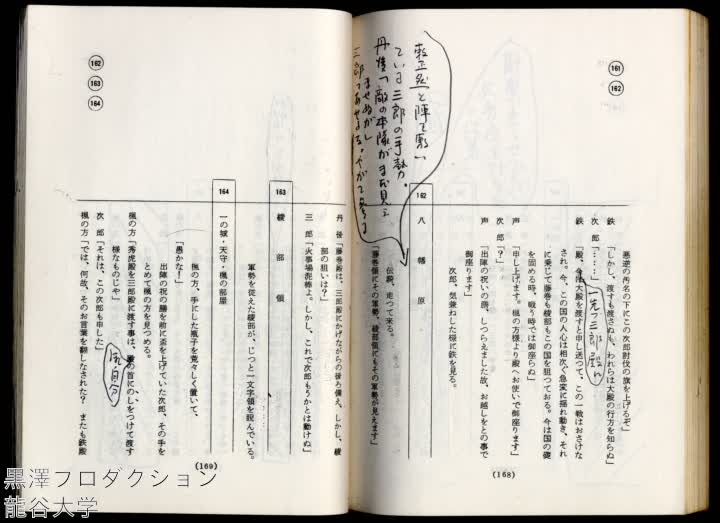 161
162
悪逆の汚名の下にこの次郎討伐の旗を上げるぞ」
鉄「しかし、渡すも渡さぬも、われらは大殿の行方を知らぬ」
次郎「……」
鉄「殿、今は大殿を渡すと申し送って、この一戦はおさけなされ。今、この国の人心は相次ぐ急変に揺れ動き、それに乗じて藤巻も綾部もこの国を狙っておる。今は国の礎を固める時、戦う時では御座らぬ」
声「申し上げます。楓の方様より殿へお使いで御座ります」
次郎「?」
声「出陣の祝いの膳、しつらえました故、お越しをとの事で御座ります」
次郎、気兼ねした様に鉄を見る。
162
八幡原
整然と陣を敷い
ている三郎の手勢。
丹後「敵の本隊がまだ見え
ませぬがし
伝騎、走って来る。
「藤巻領にその軍勢、綾部領にもその軍勢が見えます」
(168)
162
163
164
丹後「藤巻殿は、三郎殿にかげながらの後ろ備え、しかし、綾部の狙いは?」
三郎「火事場泥棒よ。しかし、これで次郎もうかとは動けぬ」
163
綾部領
軍勢を従えた綾部が、じっと一文字領を睨んでいる。
164
一の城・天守・楓の部屋
楓の方、手にした瓶子を荒々しく置いて、
「愚かな!」
出陣の祝の膳を前に盃を上げていた次郎、その手をとめて楓の方を見つめる。
楓の方「秀虎殿を三郎殿に渡す事は、の首にのしをつけて渡す様なものじや」
次郎「それは、この次郎も申した」
楓の方「では、何故、そのお言葉を翻しなされた? またも鉄殿
(169)
黒澤プロダクション
龍谷大学